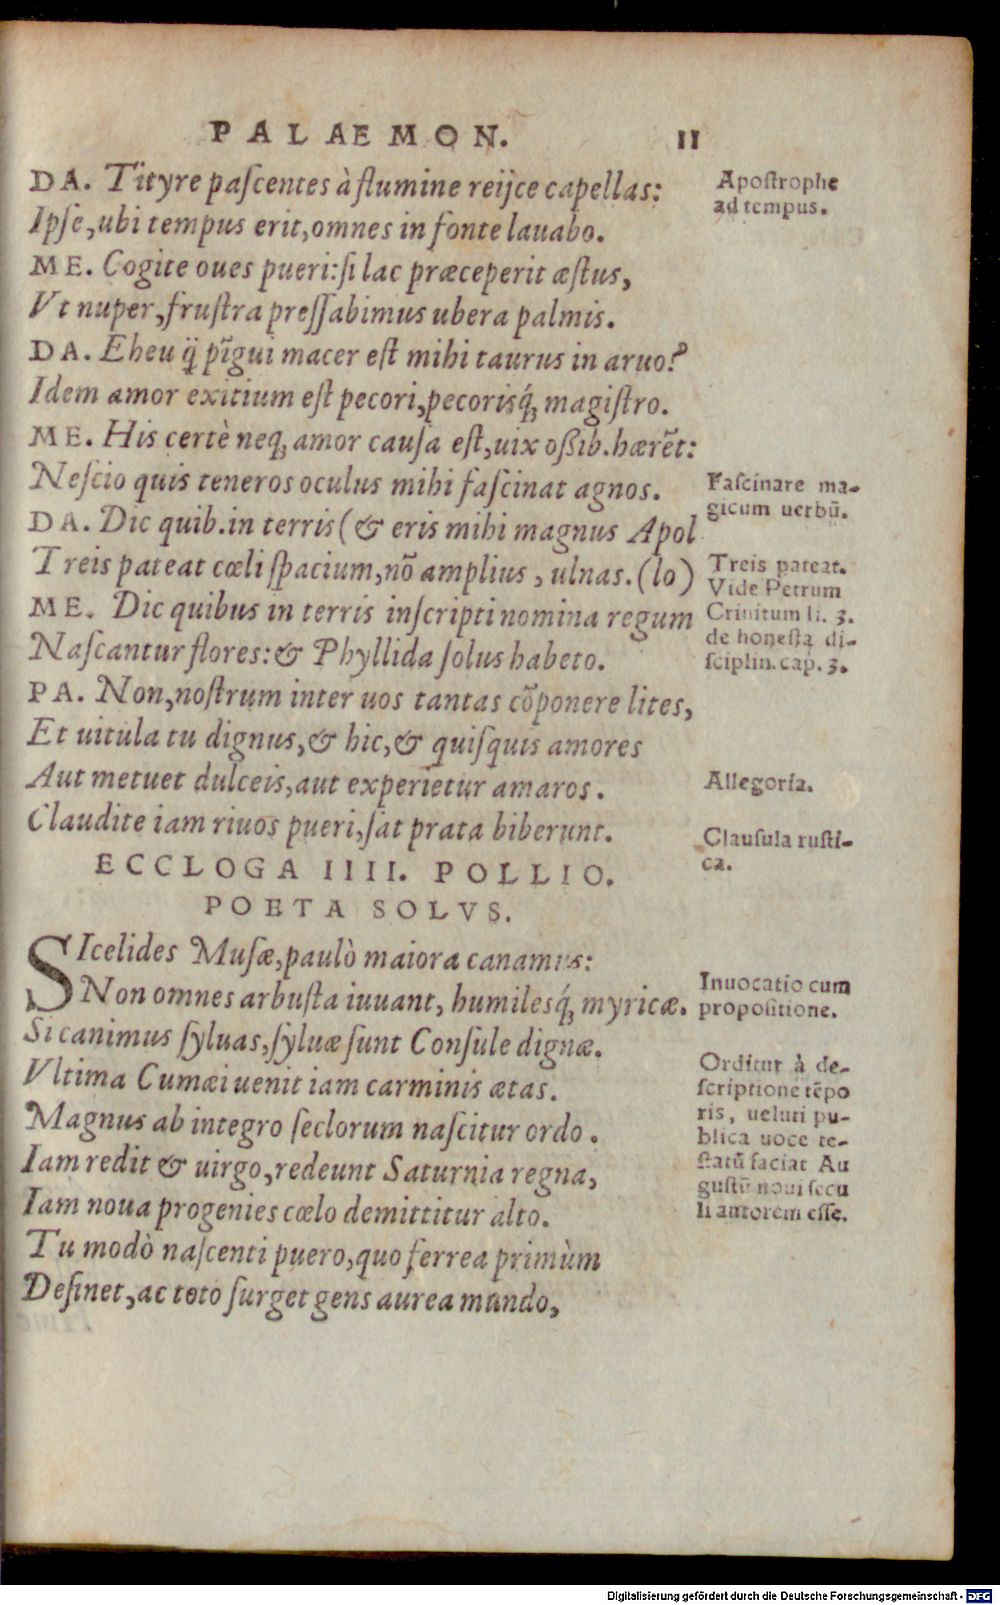 PALAEMON. 11
DA. Tityre paſcentes à flumine reijce capellas:
Ipſe, ubi tempus erit, omnes in fonte lauabo.
ME. Cogite oues pueri: ſi lac præceperit æſtus,
Vt nuper, fruſtra preſſabimus ubera palmis.
DA. Eheu q̃ pĩgui macer eſt mihi taurus in aruo?
Idem amor exitium eſt pecori, pecorisq́; magiſtro.
ME. His certè neq; amor cauſa eſt, uix oßib. hærẽt:
Neſcio quis teneros oculus mihi faſcinat agnos.
DA. Dic quib. in terris (& eris mihi magnus Apol
Treis pateat cœli ſpacium, nõ amplius, ulnas. (lo)
ME. Dic quibus in terris inſcripti nomina regum
Naſcantur flores: & Phyllida ſolus habeto.
PA. Non, noſtrum inter uos tantas cõponere lites,
Et uitula tu dignus, & hic, & quiſquis amores
Aut metuet dulceis, aut experietur amaros.
Claudite iam riuos pueri, ſat prata biberunt.
ECCLOGA IIII. POLLIO.
POETA SOLVS.
SIcelides Muſæ, paulò maiora canamus:
Non omnes arbuſta iuuant, humilesq́; myricæ.
Si canimus ſyluas, ſyluæ ſunt Conſule dignæ.
Vltima Cumæi uenit iam carminis ætas.
Magnus ab integro ſeclorum naſcitur ordo.
Iam redit & uirgo, redeunt Saturnia regna,
Iam noua progenies cœlo demittitur alto.
Tu modò naſcenti puero, quo ferrea primùm
Deſinet, ac toto ſurget gens aurea mundo,
Apoſtrophe
ad tempus.
Faſcinare ma-
gicum uerbũ.
Treis pateat.
Vide Petrum
Crinitum li. 3.
de honeſta di-
ſciplin. cap. 3.
Allegoria.
Clauſula ruſti-
ca.
Inuocatio cum
propoſitione.
Orditur à de-
ſcriptione tẽpo
ris, ueluti pu-
blica uoce te-
ſtatũ faciat Au
guſtũ noui ſecu
li autorem eſſe.
Digitalisierung gefördert durch die Deutsche Forschungsgemeinschaft - DFG